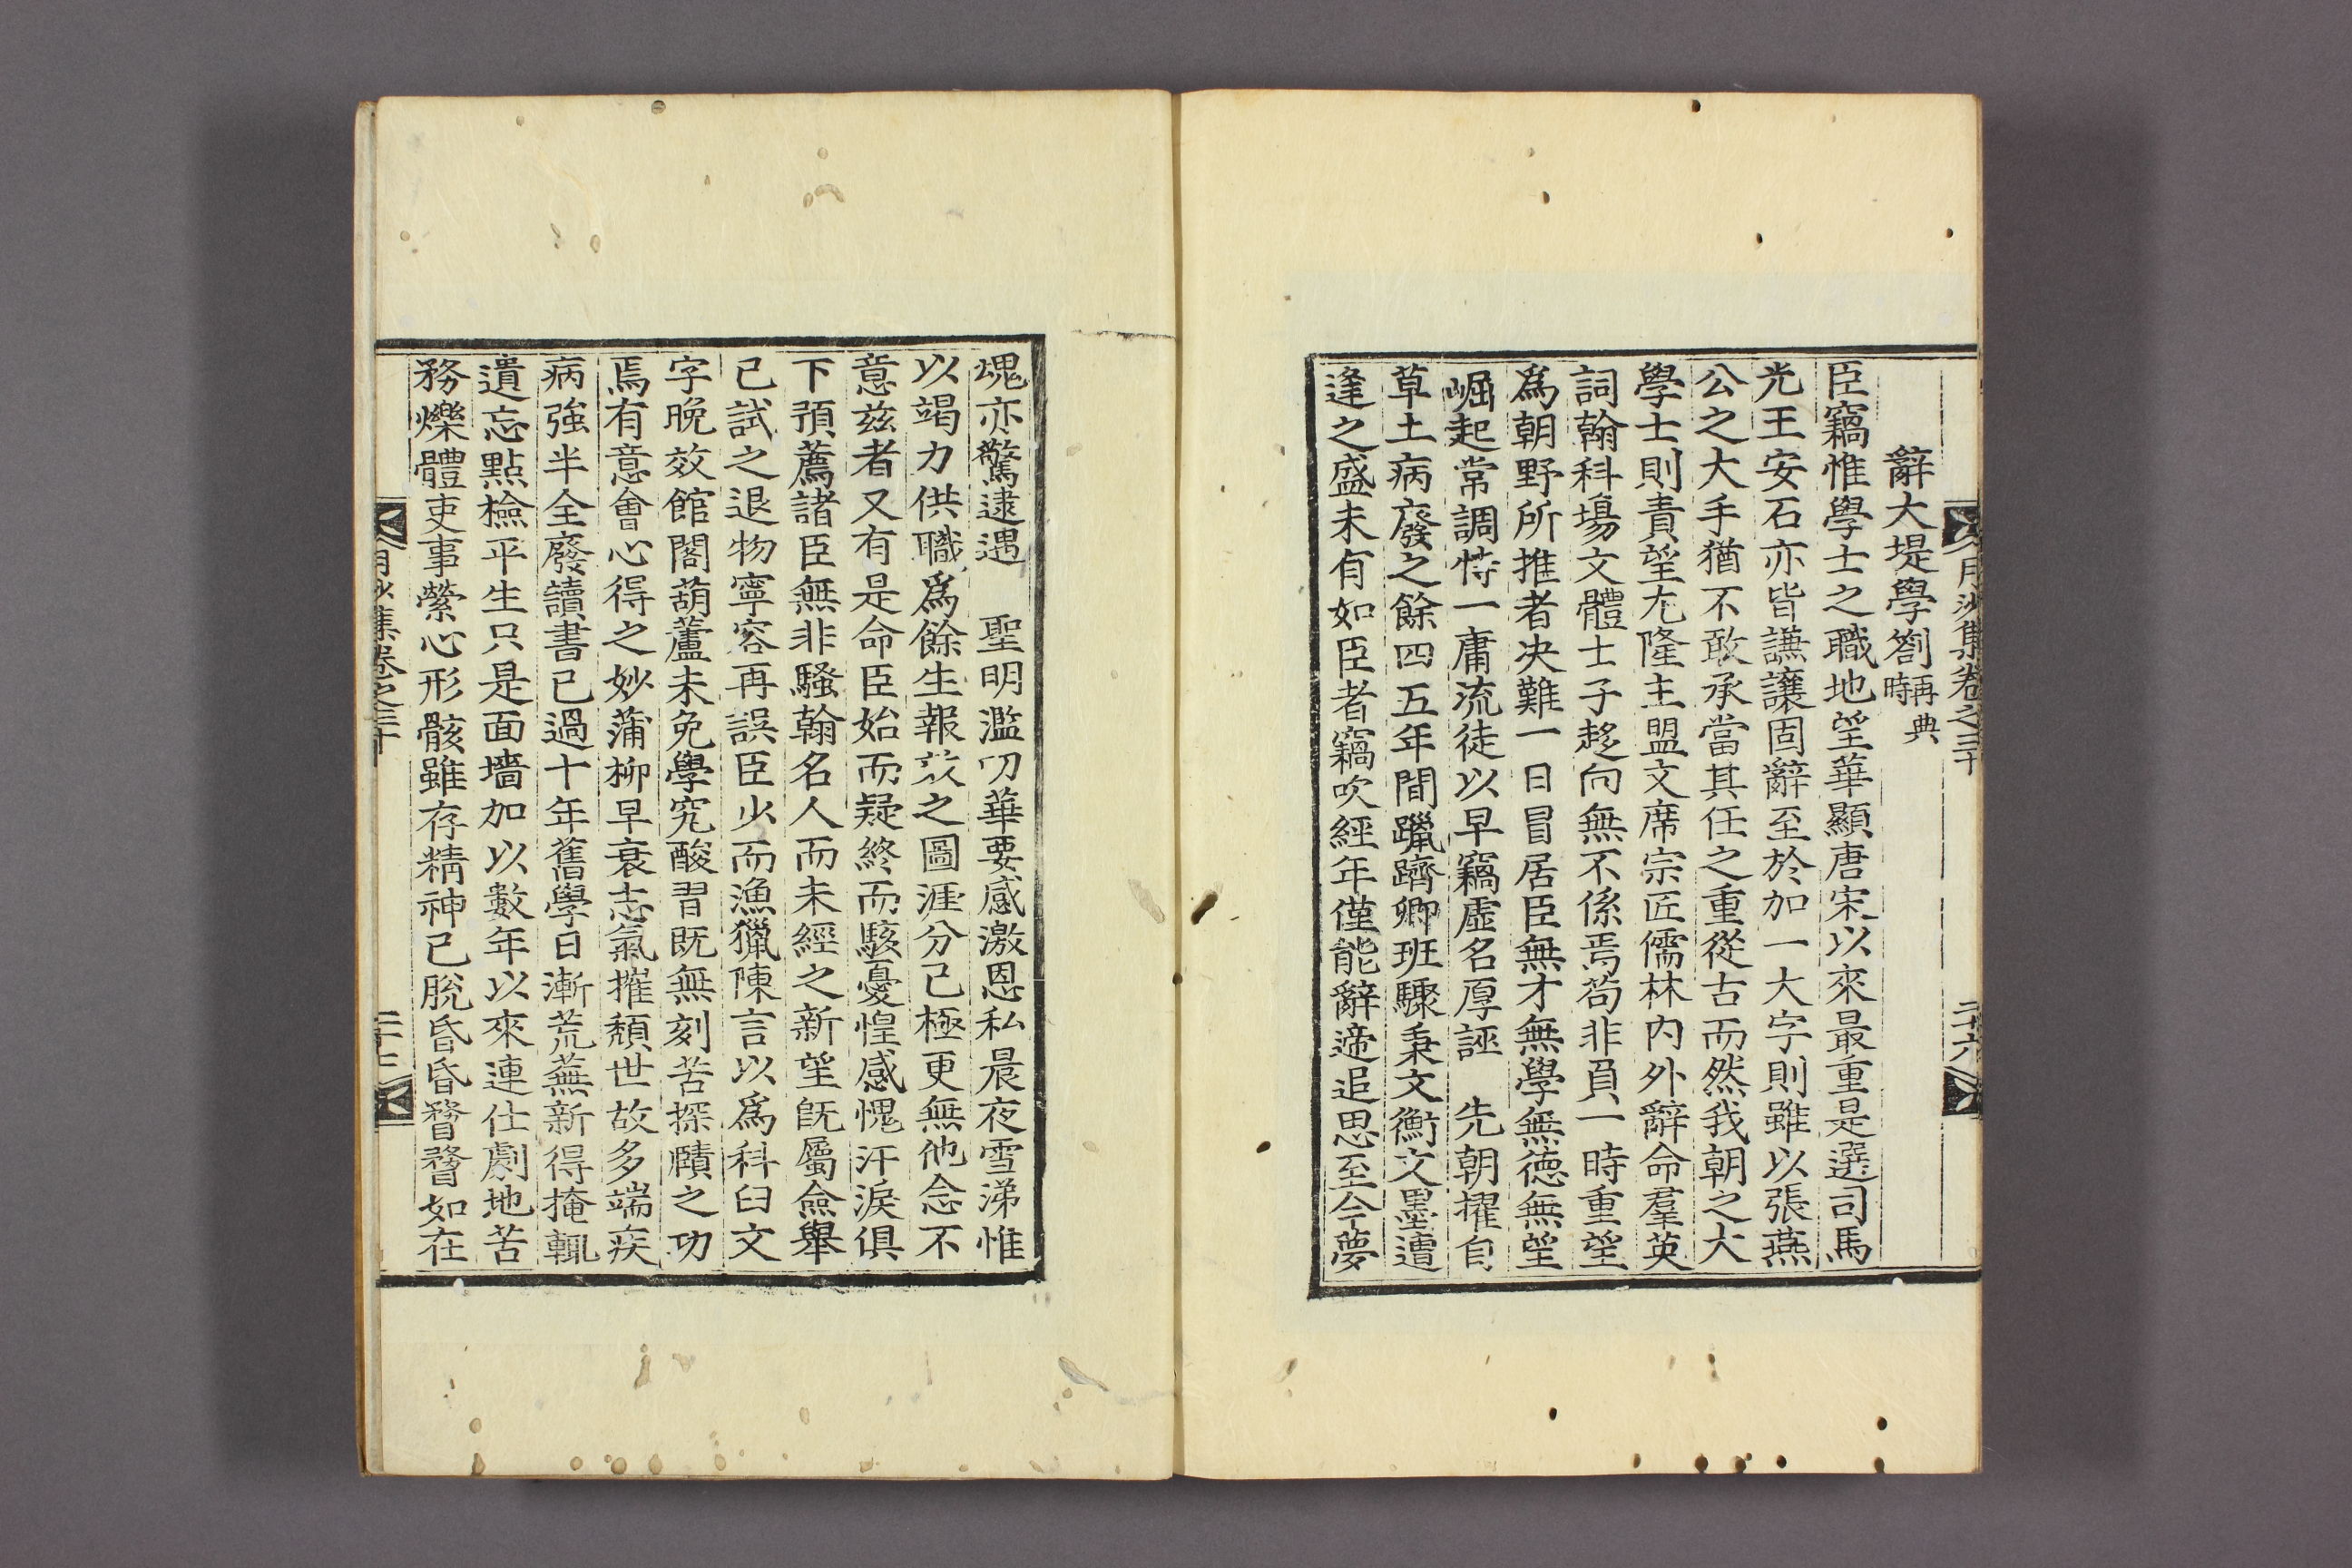 月沙集卷之三十 二十六
辭大堤學劄再典時
臣竊惟學士之職地望華顯唐宋以來最重是選司馬
光王安石亦皆謙讓固辭至於加一大字則雖以張燕
公之大手猶不敢承當其任之重從古而然我朝之大
學士則責望尤隆主盟文席宗匠儒林內外辭命羣英
詞翰科場文體士子趍向無不係焉苟非負一時重望
爲朝野所推者决難一日冒居臣無才無學無德無望
崛起常調恃一庸流徒以早竊虛名厚誣 先朝擢自
草土病廢之餘四五年間躐躋卿班驟秉文衡文墨遭
逢之盛未有如臣者竊吹經年僅能辭遞追思至今夢
魂亦驚逮遇 聖明濫叨華要感激恩私晨夜雪涕惟
以竭力供職爲餘生報效之圖涯分已極更無他念不
意玆者又有是命臣始而疑終而駭憂惶感愧汗淚俱
下預薦諸臣無非騷翰名人而未經之新望旣屬僉舉
已試之退物寧容再誤臣少而漁獵陳言以爲科臼文
字晚效館閣葫蘆未免學究酸習旣無刻苦探賾之功
焉有意會心得之妙蒲柳早衰志氣摧頹世故多端疾
病強半全廢讀書已過十年舊學日漸荒蕪新得掩輒
遺忘點檢平生只是面墻加以數年以來連仕劇地苦
務爍體吏事縈心形骸雖存精神已脫昏昏瞀瞀如在
月沙集卷之三十